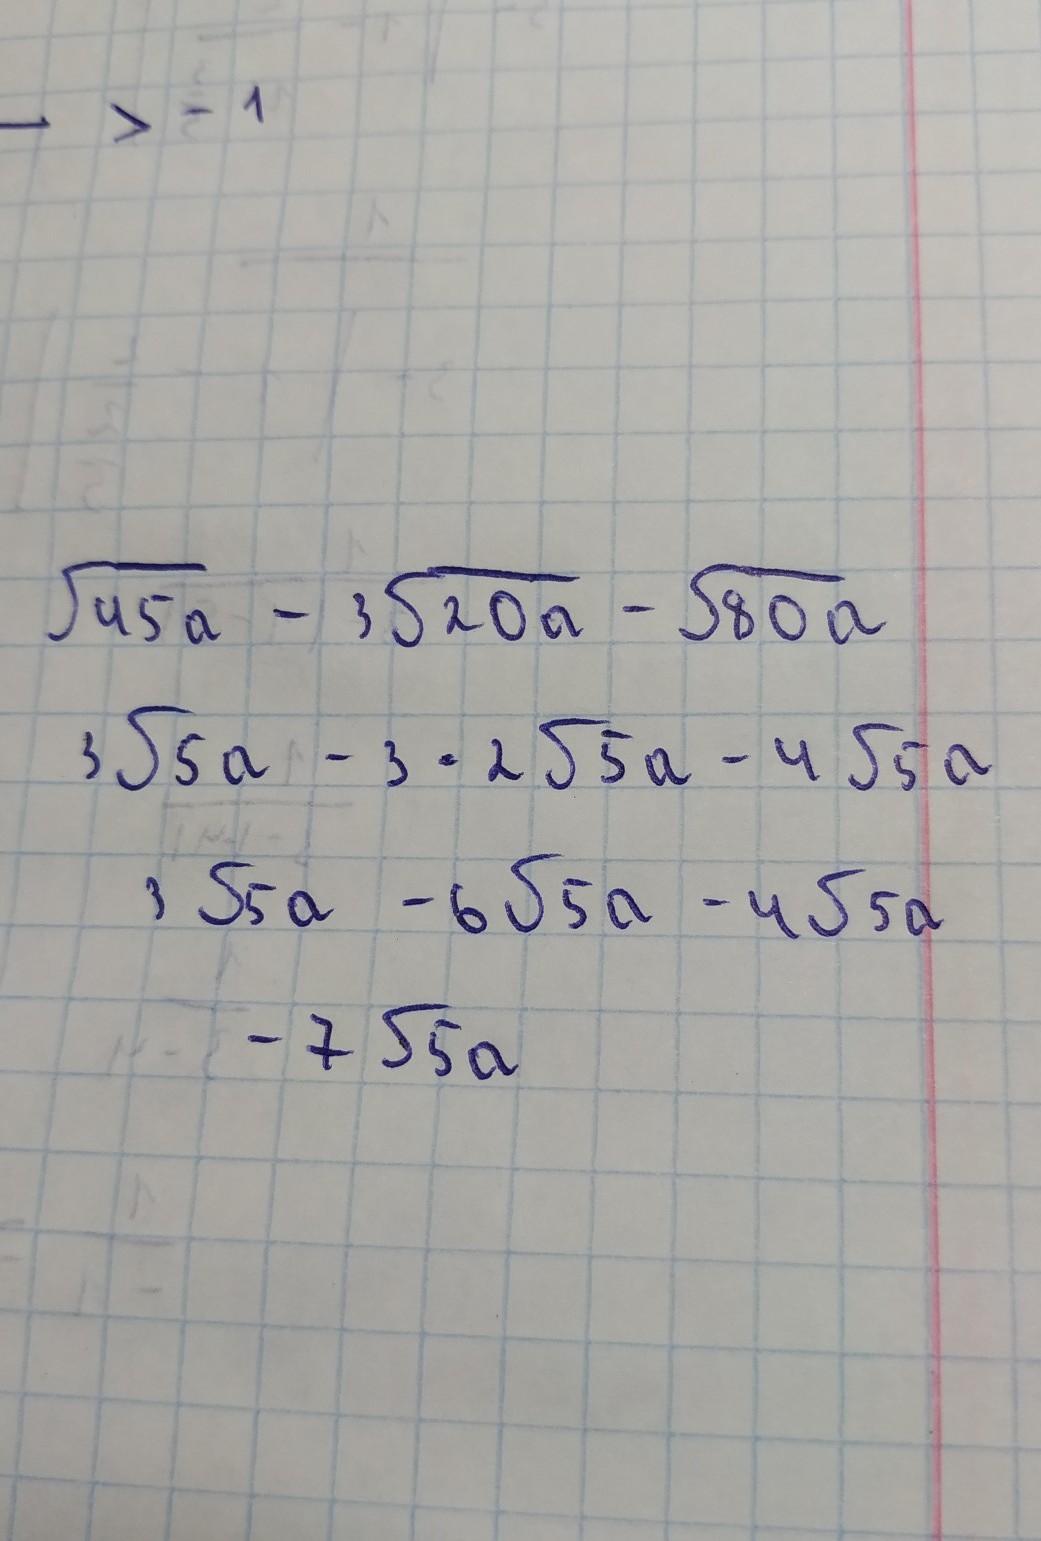 — > - 1
√45a - 3√20a - √80a
3√5a - 3 · 2√5a - 4√5a
3√5a - 6√5a - 4√5a
- 7√5a